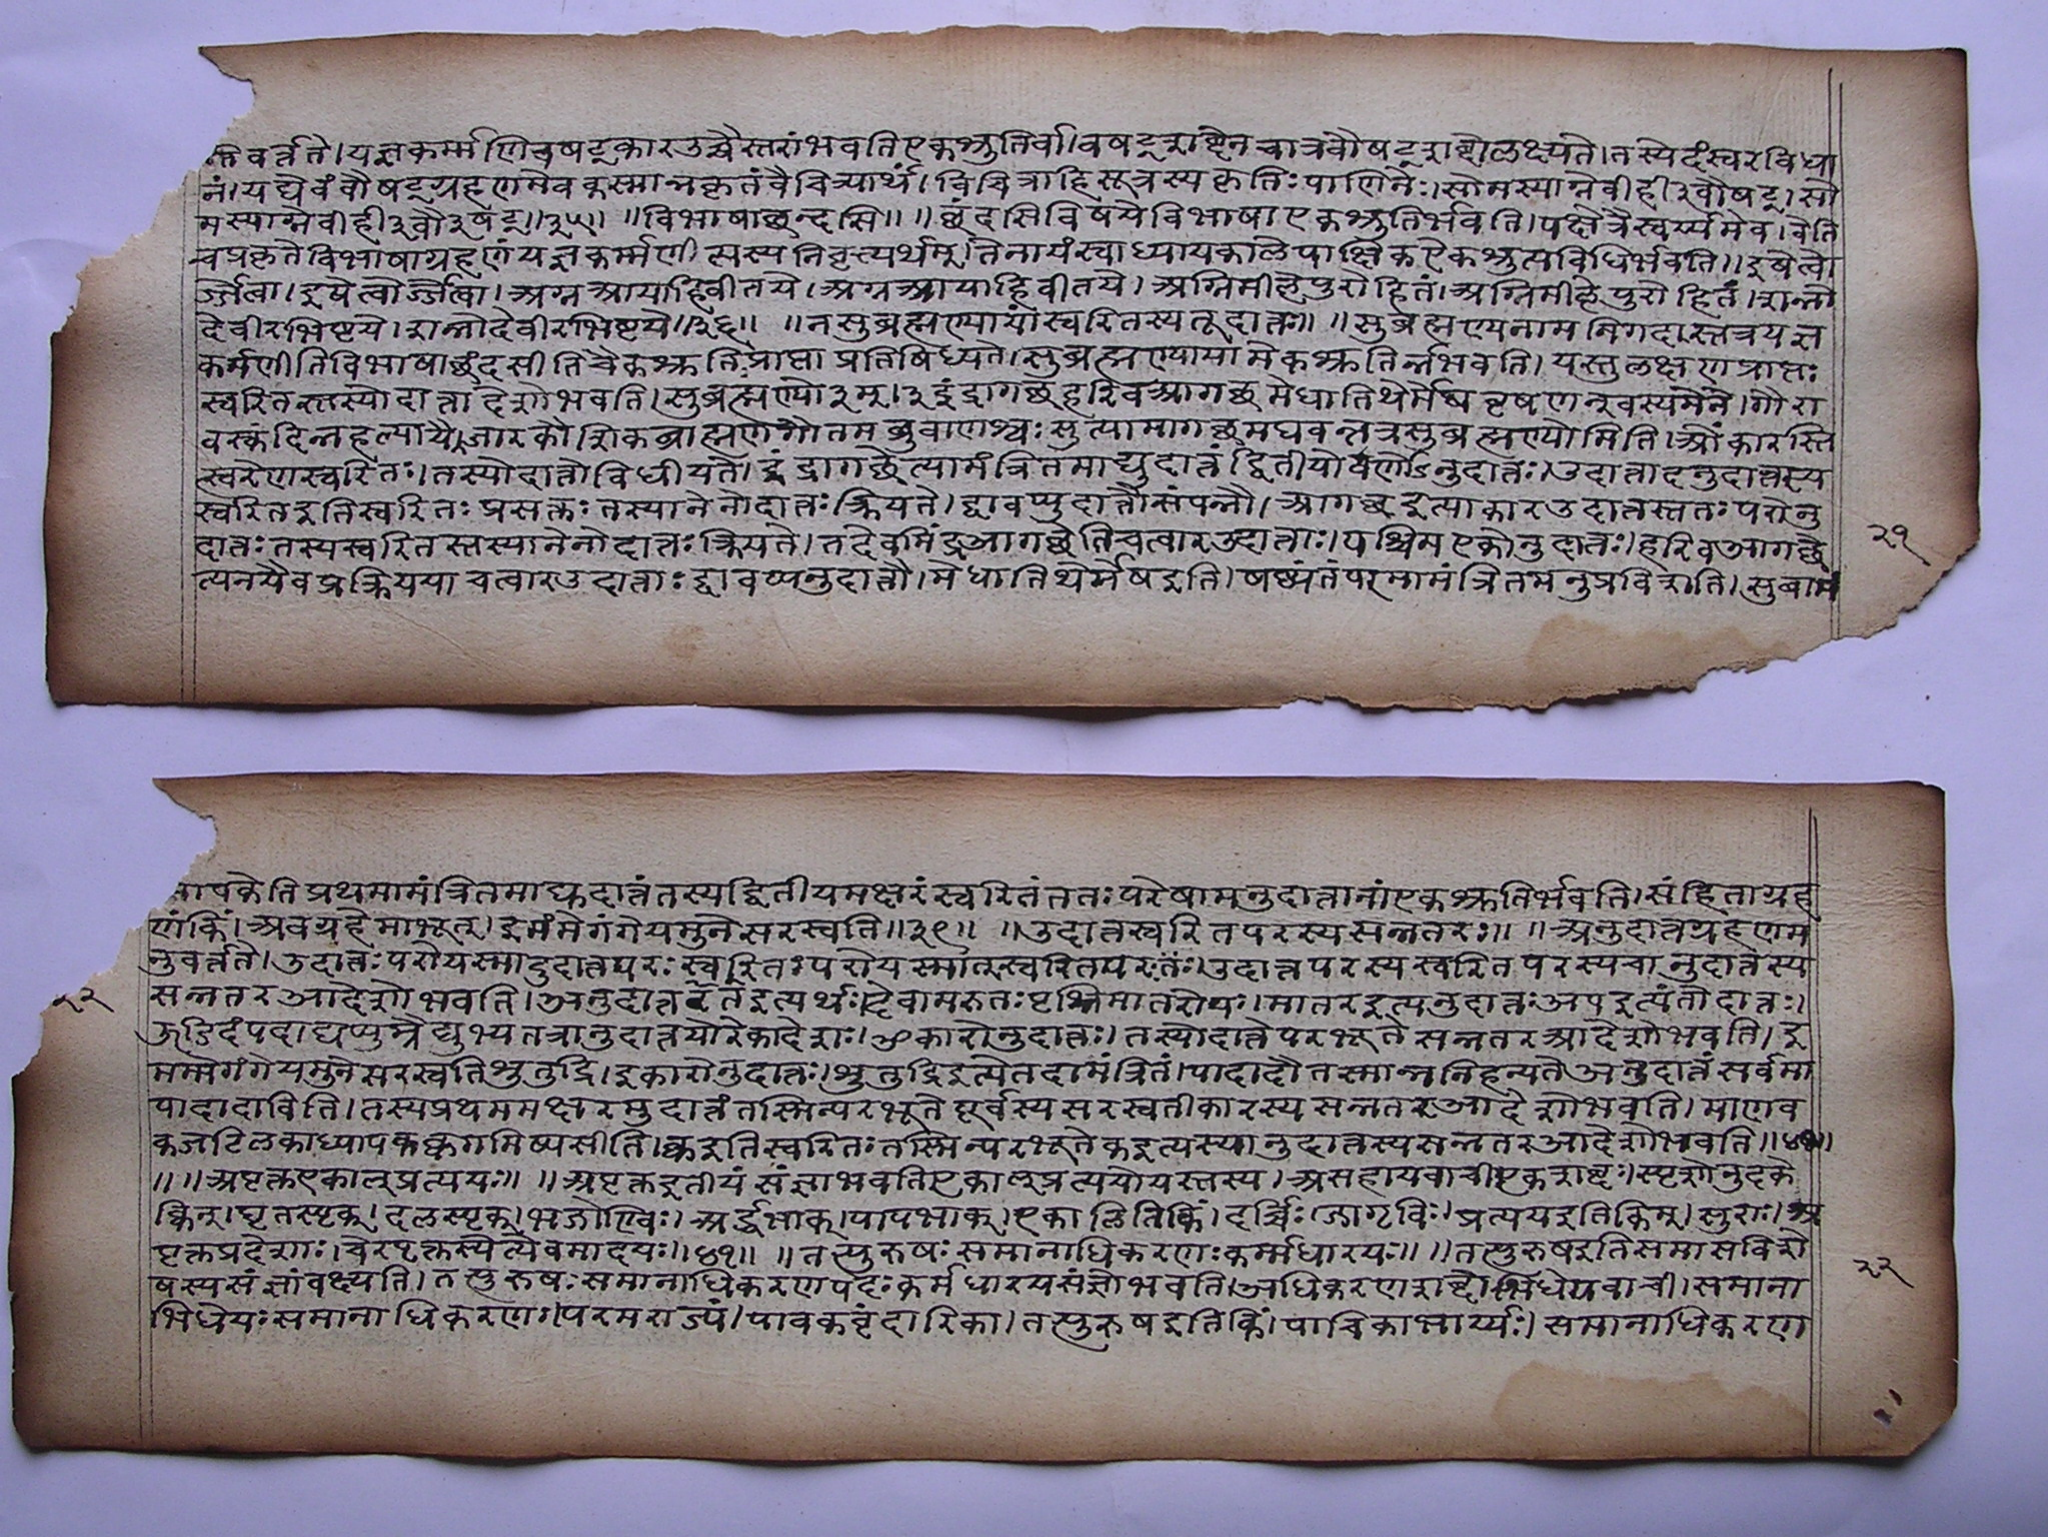 वर्त्तते। यज्ञकर्म्मणि वषट्कार उच्चैस्तरां भवति एकश्रुतिर्वा। वषट्शब्देन चात्र वौषट्शब्दो लक्ष्यते। तस्येदं स्वरविधा
नं। यद्येवं वौषट्ग्रहणमेव कस्मान्न कृतं वैचित्र्यार्थं। विचित्रा हि सूत्रस्य कृतिः पाणिनेः। सोमस्याग्ने वीही३वौषट्। सो
मस्याग्ने वीही३वौ३षट्॥३५॥ ॥विभाषा छन्दसि॥ ॥छंदसि विषये विभाषा एकश्रुतिर्भवति। पक्षे त्रैस्वर्य्यमेव। वेति
च प्रकृते विभाषाग्रहणं यज्ञकर्म्मणीत्यस्य निवृत्त्यर्थम्। तेनायं स्वाध्यायकाले पाक्षिक ऐकश्रुत्यविधिर्भवति॥ इषे त्वो
र्ज्जे त्वा। इषे त्वोर्ज्जे त्वा। अग्न आयाहि वीतये। अग्न आयाहि वीतये। अग्निमीले पुरोहितं। अग्निमीले पुरोहितं। शन्नो
देवीरभिष्टये। शन्नो देवीरभिष्टये॥३६॥ ॥न सुब्रह्मण्यायां स्वरितस्य तूदात्तः॥ ॥सुब्रह्मण्य नाम निगदस्तत्र यज्ञ
कर्मणीति विभाषा छंदसीति चैकश्रुतिः प्राप्ता प्रतिषिध्यते। सुब्रह्मण्यायामेकश्रुतिर्न्न भवति। यस्तु लक्षणप्राप्तः
स्वरितस्तस्योदात्तादेशो भवति। सुब्रह्मण्यो३म्।३ इंद्रागच्छ हरिव आगच्छ मेधातिथेर्मेष वृषणश्वस्य मेने। गौरा
वस्कंदिन्नहल्यायै जार कौशिकब्राह्मण गौतमब्रुवाण श्वः सुत्यामागच्छ मघवन्नत्र सुब्रह्मण्योमिति। ओंकारस्ति
त्स्वरेण स्वरितः। तस्योदात्तो विधीयते। इंद्रागच्छेत्यामंत्रितमाद्युदात्तं द्वितीयो वर्णोऽनुदात्तः। उदात्तादनुदात्तस्य
स्वरित इति स्वरितः प्रसक्तः तस्यानेनोदात्तः क्रियते। द्वावप्युदात्तौ संपन्नौ। आगच्छ इत्याकार उदात्तस्ततः परोनु
दात्तः तस्य स्वरितस्तस्यानेनोदात्तः क्रियते। तदेवमिंद्र आगच्छेति चत्वार उदात्ताः। पश्चिम एकोनुदात्तः। हरिव आगच्छे
त्यनयैव प्रक्रियया चत्वार उदात्ताः द्वावप्यनुदात्तौ। मेधातिथेर्मेष इति। षष्ठ्यंतं परमामंत्रितमनुप्रविशति। सुबामं
२१
षकेति प्रथमामंत्रितमाद्युदात्तं तस्य द्वितीयमक्षरं स्वरितं ततः परेषामनुदात्तानां एकश्रुतिर्भवति। संहिताग्रह
णं किं। अवग्रहे माभूत्। इमं मे गंगे यमुने सरस्वति॥३९॥ ॥उदात्तस्वरितपरस्य सन्नतरः॥ ॥अनुदात्तग्रहणम
नुवर्त्तते। उदात्तः परो यस्मादुदात्तपरः स्वरितः परो यस्मात् स्वरितपरः। उदात्तपरस्य स्वरितपरस्य चानुदात्तस्य
सन्नतर आदेशो भवति। अनुदात्ततर इत्यर्थः। देवा मरुतः पृश्निमातरोपः। मातर इत्यनुदात्तः अप इत्यंतोदात्तः।
२२
ऊडिदंपदाद्यप्पुम्रैद्युभ्य तत्रानुदात्तयोरेकादेशः। ओकारोनुदात्तः। तस्योदात्ते परभूते सन्नतर आदेशो भवति। इ
मम्मे गंगे यमुने सरस्वति शुतुद्रि। इकारोनुदात्तः। शुतुद्रि इत्येतदामंत्रितं। पादादौ तस्मान्न निहन्यते अनुदात्तं सर्वमा
पादादाविति। तस्य प्रथममक्षरमुदात्तं तस्मिन्परभूते पूर्वस्य सरस्वतीकारस्य सन्नतर आदेशो भवति। माणव
क जटिलकाध्यापक क्व गमिष्यसीति। क्व इति स्वरितः तस्मिन्परभूते क इत्यस्यानुदात्तस्य सन्नतर आदेशो भवति॥४०॥
॥ ॥अपृक्त एकाल् प्रत्ययः॥ ॥अपृक्त इतीयं संज्ञा भवति एकाल् प्रत्ययो यस्तस्य। असहायवाची एकशब्दः। स्पृशोनुदके
क्विन्। घृतस्पृक्। दलस्पृक्। भजो ण्विः। अर्द्धभाक्। पापभाक्। एकालिति किं। दर्व्विः। जागृविः। प्रत्यय इति किम्। सुराः। अ
पृक्तप्रदेशाः। वेरपृक्तस्येत्येवमादयः॥४१॥ ॥तत्पुरुषः समानाधिकरणः कर्म्मधारयः॥ ॥तत्पुरुष इति समासविशे
षस्य संज्ञां वक्ष्यति। तत्पुरुषः समानाधिकरणपदः कर्मधारयसंज्ञो भवति। अधिकरणशब्दोभिधेयवाची। समाना
भिधेयः समानाधिकरण। परमराज्यं। पावकवृंदारिका। तत्पुरुष इति किं। पाचिकाभार्य्यः। समानाधिकरण
२२